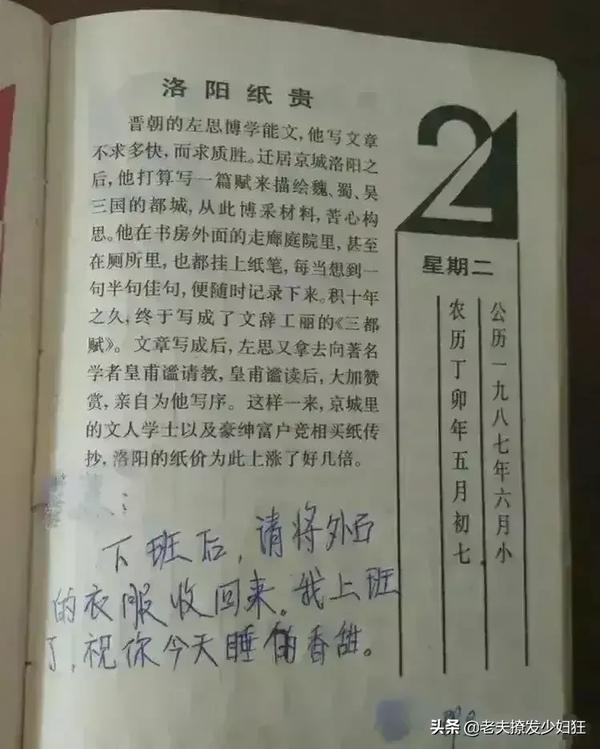 洛阳纸贵
晋朝的左思博学能文,他写文章
不求多快,而求质胜。迁居京城洛阳之
后,他打算写一篇赋来描绘魏、蜀、吴
三国的都城,从此博采材料,苦心构
思。他在书房外面的走廊庭院里,甚至
在厕所里,也都挂上纸笔,每当想到一
句半句佳句,便随时记录下来。积十年
之久,终于写成了文辞工丽的《三都
赋》。文章写成后,左思又拿去向著名
学者皇甫谧请教,皇甫谧读后,大加赞
赏,亲自为他写序。这样一来,京城里
的文人学士以及豪绅富户竞相买纸传
抄,洛阳的纸价为此上涨了好几倍。
2
星期二
公历一九八七年六月小
农历丁卯年五月初七
下班后,请将外面
的衣服收回来。我上班
了,祝你今天睡的香甜。
头条 @老夫撩发少妇狂